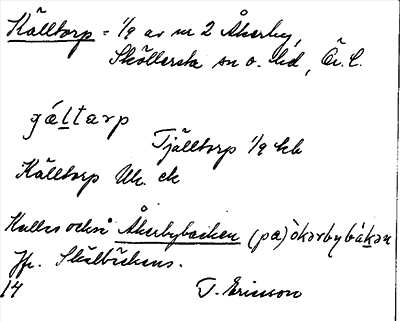 Källtorp = 1/9 av nr 2 Åkerby,
Sköllersta sn o. hd, Ör. l.
gáltarp
Tjälltorp 1/9 hb
Källtorp Uk. ek
Kallas också Åkerbybacken (pa) òkərbybákən
Jfr. Skålbäckens.
14 T. Ericsson